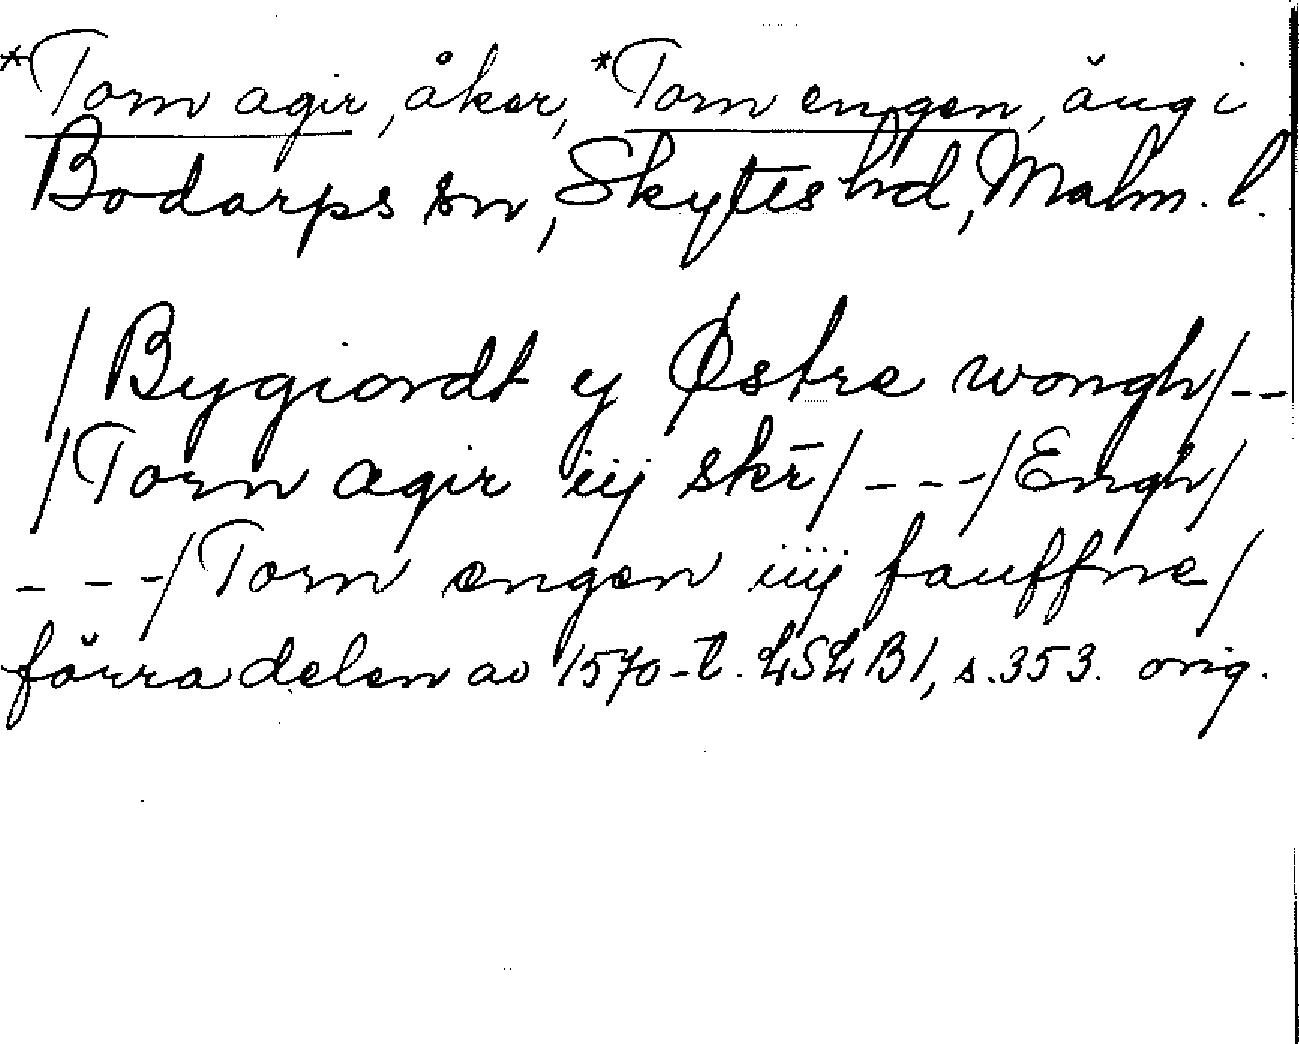 *Torn agir, åker, *Torn engen, äng i
Bodarps sn, Skytts hd, Malm. l.
/Bygiordt y Østre wongh/--
/Torn agir iij skr̄/---/Engh/
---/Torn engen iiij fauffne/
förra delen av 1570-t. LSLB1, s.353. orig.